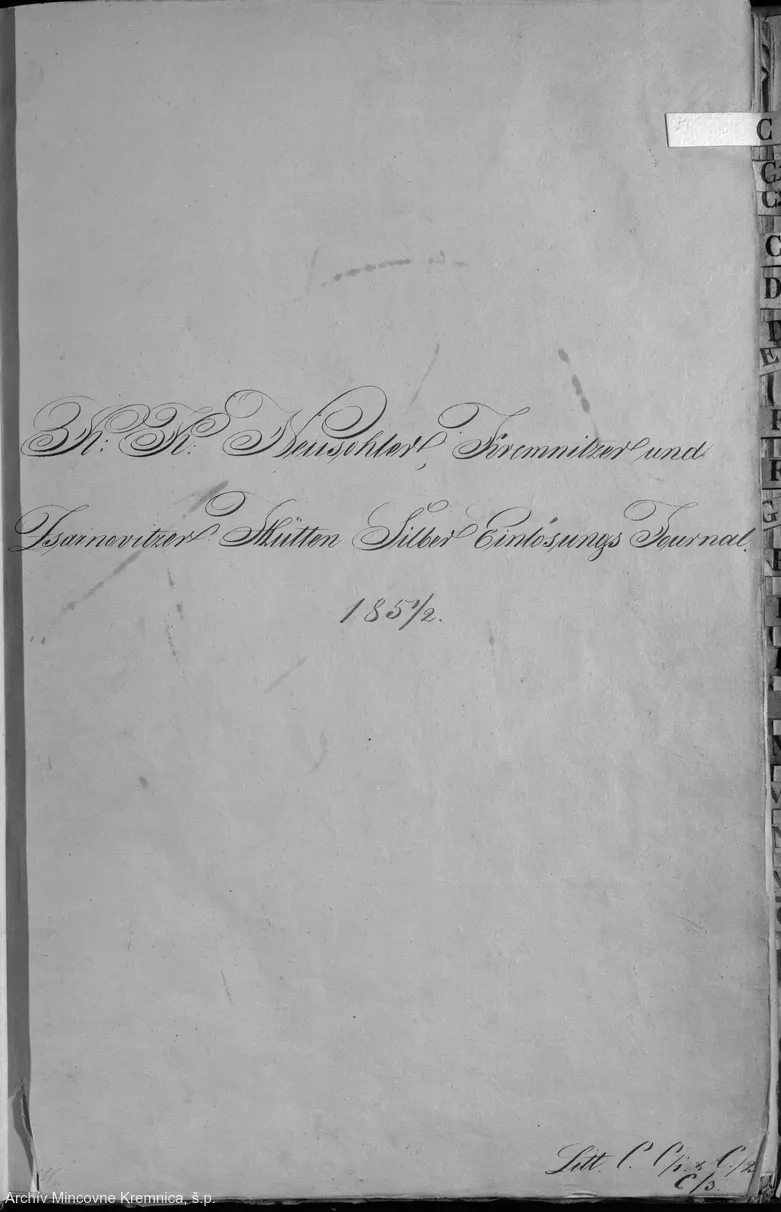 K: K: Neusohler, Kremnitzer und
Zsarnovitzer Hütten Silber Einlösungs Journal.
185 1/2.
Litt. C. C/1. & C/2
C/3.
C
C
C
C
D
Archiv Mincovne Kremnica, š.p.